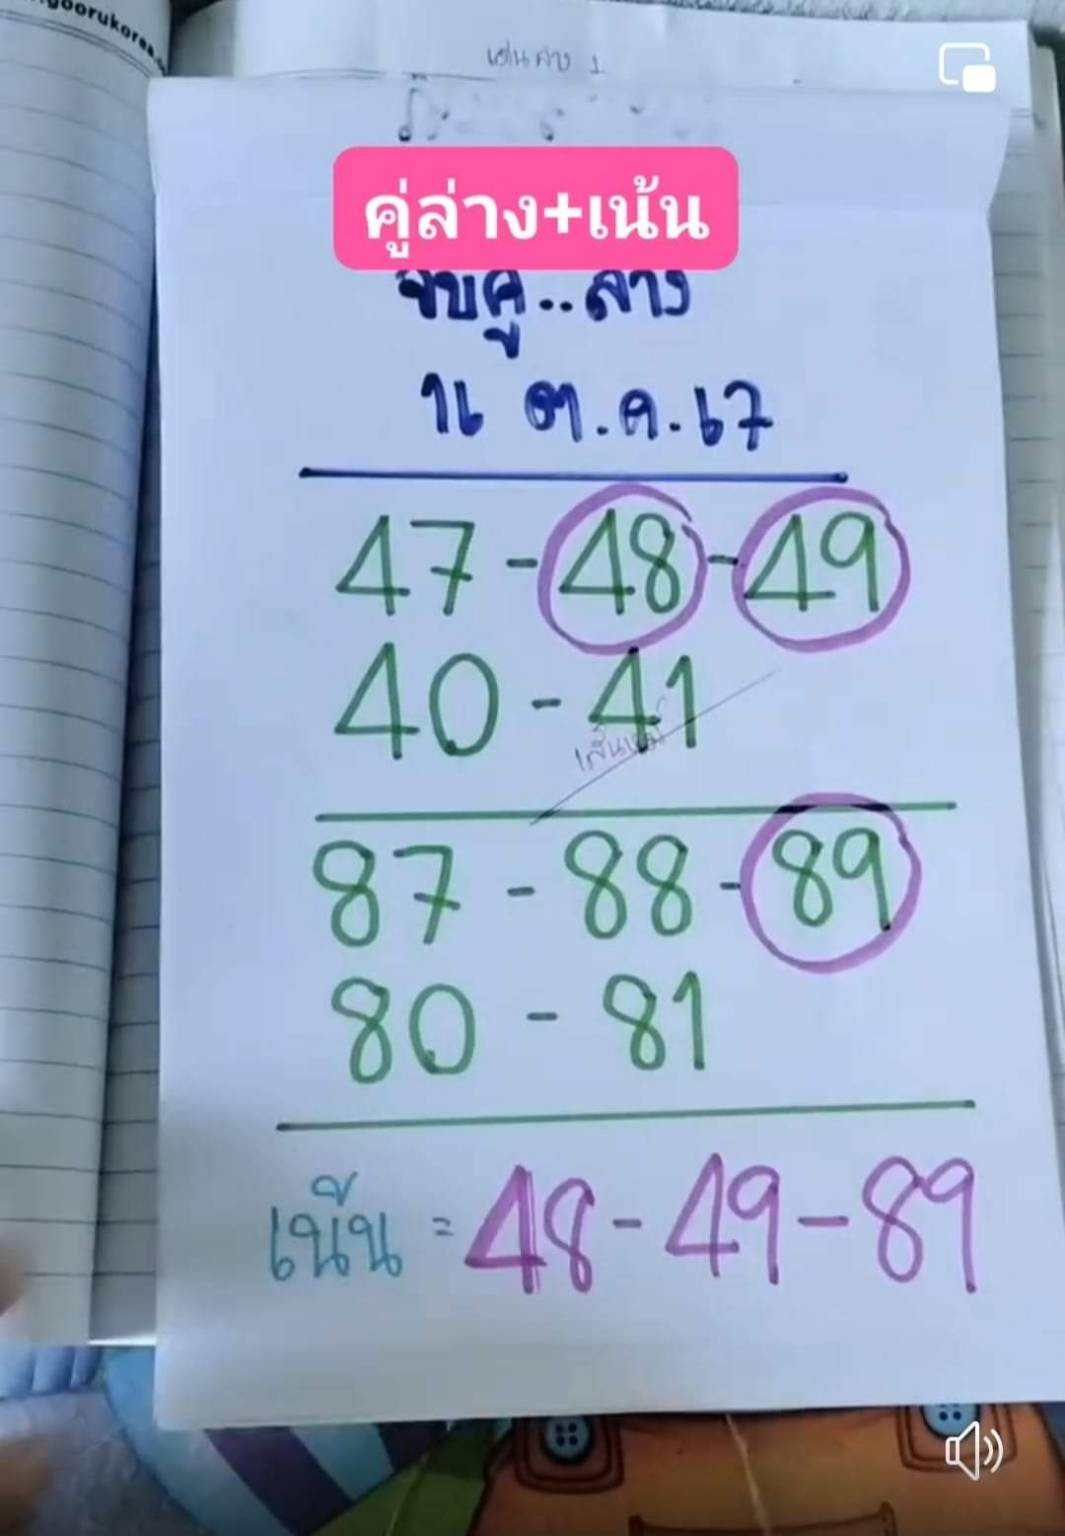 เด่นล่าง 1
คู่ล่าง+เน้น
จับคู่..ล่าง
16 ต.ค.67
47-48-49
40-41
87-88-89
80-81
เน้น = 48-49-89